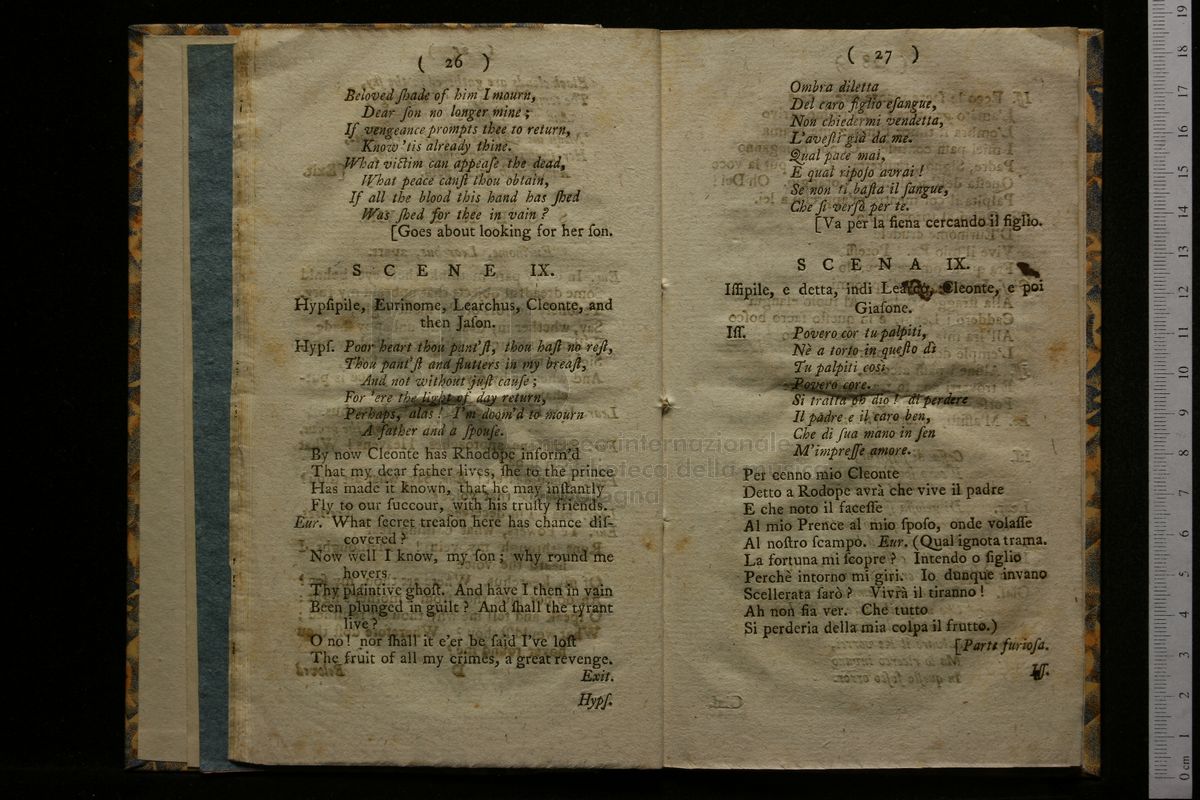 ( 26 )
Beloved ſhade of him I mourn,
Dear ſon no longer mine ;
If vengeance prompts thee to return,
Know 'tis already thine.
What victim can appeaſe the dead,
What peace canſt thou obtain,
If all the blood this hand has ſhed
Was ſhed for thee in vain ?
[Goes about looking for her ſon.
S C E N E IX.
Hypſipile, Eurinome, Learchus, Cleonte, and
then Jaſon.
Hypſ. Poor heart thou pant'ſt, thou haſt no reſt,
Thou pant'ſt and flutters in my breaſt,
And not without juſt cauſe ;
For 'ere the light of day return,
Perhaps, alas ! I'm doom'd to mourn
A father and a ſpouſe.
By now Cleonte has Rhodope inform'd
That my dear father lives, ſhe to the prince
Has made it known, that he may inſtantly
Fly to our ſuccour, with his truſty friends.
Eur. What ſecret treaſon here has chance diſ-
covered ?
Now well I know, my ſon ; why round me
hovers
Thy plaintive ghoſt. And have I then in vain
Been plunged in guilt ? And ſhall the tyrant
live ?
O no ! nor ſhall it e'er be ſaid I've loſt
The fruit of all my crimes, a great revenge.
Exit.
Hypſ.
( 27 )
Ombra diletta
Del caro figlio eſangue,
Non chiedermi vendetta,
L'aveſti già da me.
Qual pace mai,
E qual ripoſo avrai !
Se non ti baſta il ſangue,
Che ſi versò per te.
[Va per la ſiena cercando il figlio.
S C E N A IX.
Iſſipile, e detta, indi Learco, Cleonte, e poi
Giaſone.
Iſſ. Povero cor tu palpiti,
Nè a torto in queſto dì
Tu palpiti così
Povero core.
Si tratta oh dio ! di perdere
Il padre e il caro ben,
Che di ſua mano in ſen
M'impreſſe amore.
Per cenno mio Cleonte
Detto a Rodope avrà che vive il padre
E che noto il faceſſe
Al mio Prence al mio ſpoſo, onde volaſſe
Al noſtro ſcampo. Eur. (Qual ignota trama.
La fortuna mi ſcopre ? Intendo o figlio
Perchè intorno mi giri. Io dunque invano
Scellerata ſarò ? Vivrà il tiranno !
Ah non fia ver. Che tutto
Si perderia della mia colpa il frutto.)
[Parte furioſa.
Iſſ.
museo internazionale
biblioteca della musica
bologna